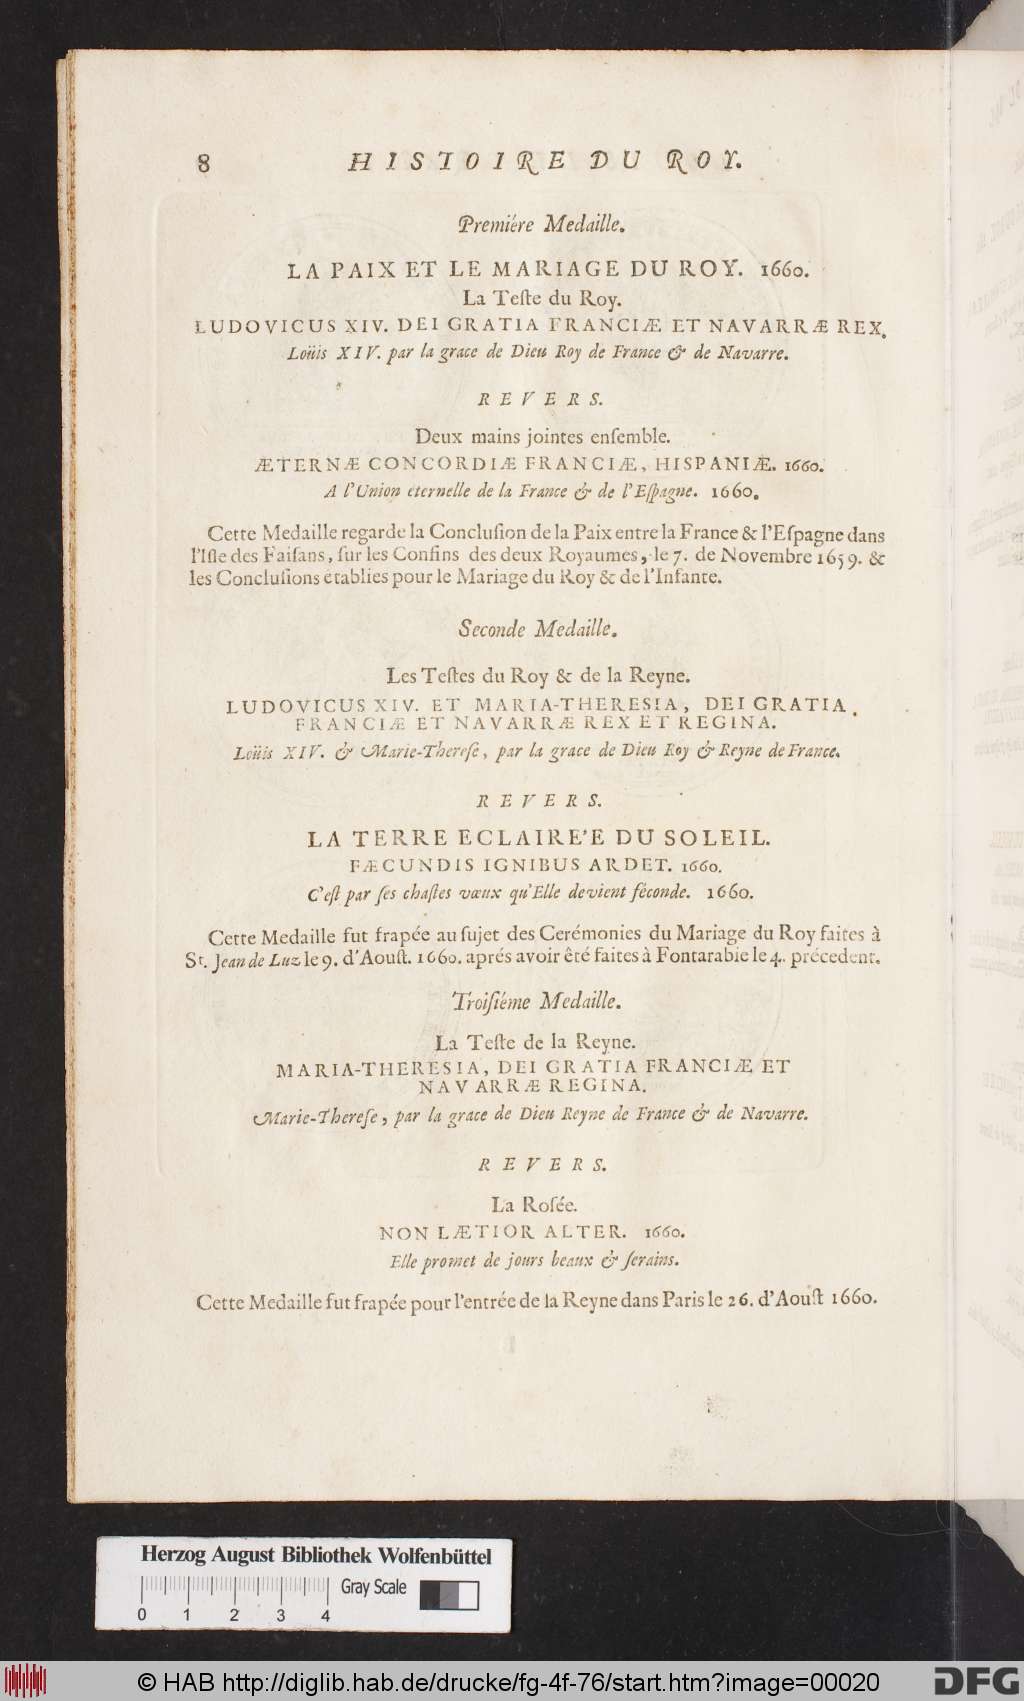 8 HISTOIRE DU ROY.
Premiére Medaille.
LA PAIX ET LE MARIAGE DU ROY. 1660.
La Teſte du Roy.
LUDOVICUS XIV. DEI GRATIA FRANCIÆ ET NAVARRÆ REX.
Loüis XIV. par la grace de Dieu Roy de France & de Navarre.
REVERS.
Deux mains jointes enſemble.
ÆTERNÆ CONCORDIÆ FRANCIÆ, HISPANIÆ. 1660.
A l'Union eternelle de la France & de l'Eſpagne. 1660.
Cette Medaille regarde la Concluſion de la Paix entre la France & l'Eſpagne dans
l'Iſle des Faiſans, ſur les Confins des deux Royaumes, le 7. de Novembre 1659. &
les Concluſions établies pour le Mariage du Roy & de l'Infante.
Seconde Medaille.
Les Teſtes du Roy & de la Reyne.
LUDOVICUS XIV. ET MARIA-THERESIA, DEI GRATIA
FRANCIÆ ET NAVARRÆ REX ET REGINA.
Loüis XIV. & Marie-Thereſe, par la grace de Dieu Roy & Reyne de France.
REVERS.
LA TERRE ECLAIRE'E DU SOLEIL.
FÆCUNDIS IGNIBUS ARDET. 1660.
C'eſt par ſes chaſtes vœux qu'Elle devient féconde. 1660.
Cette Medaille fut frapée au ſujet des Cerémonies du Mariage du Roy faites à
St. Jean de Luz le 9. d'Aouſt. 1660. aprés avoir êté faites à Fontarabie le 4. précedent.
Troiſiéme Medaille.
La Teſte de la Reyne.
MARIA-THERESIA, DEI GRATIA FRANCIÆ ET
NAVARRÆ REGINA.
Marie-Thereſe, par la grace de Dieu Reyne de France & de Navarre.
REVERS.
La Roſée.
NON LÆTIOR ALTER. 1660.
Elle promet de jours beaux & ſerains.
Cette Medaille fut frapée pour l'entrée de la Reyne dans Paris le 26. d'Aouſt 1660.
Herzog August Bibliothek Wolfenbüttel
Gray Scale
0 1 2 3 4
© HAB http://diglib.hab.de/drucke/fg-4f-76/start.htm?image=00020
DFG